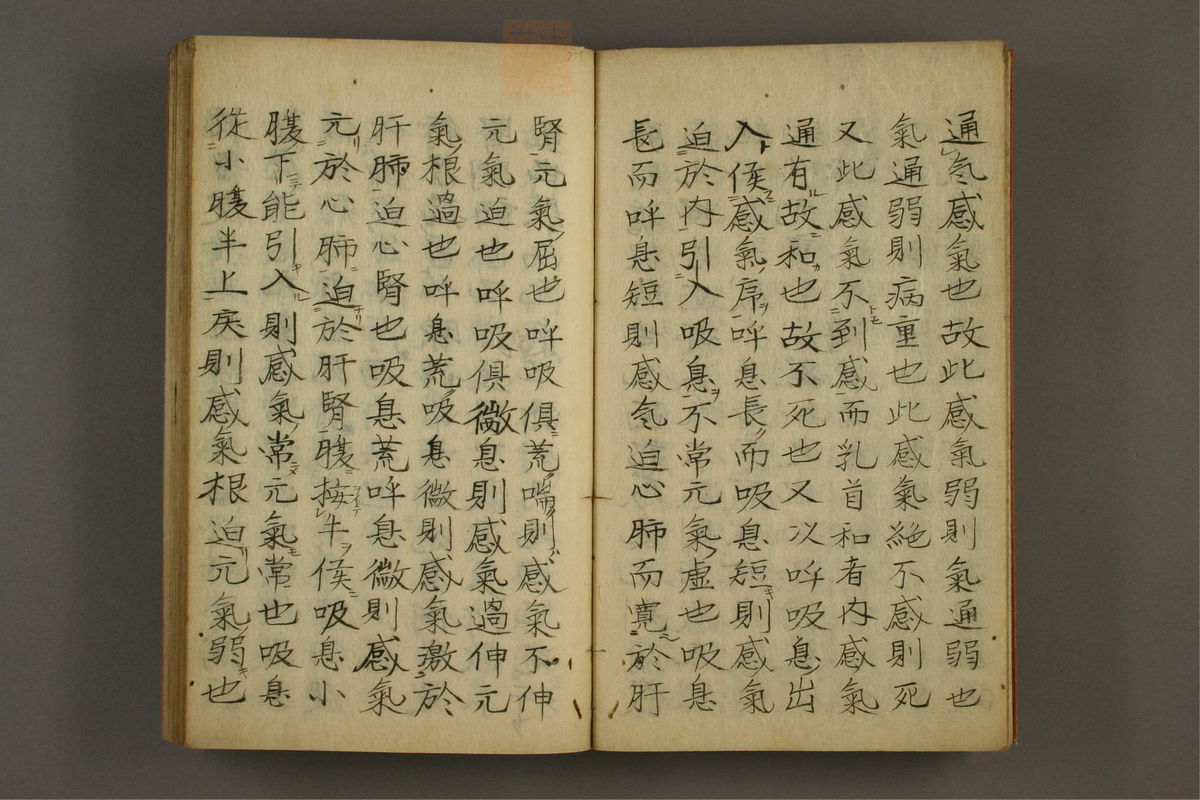 通気感氣也故此感氣弱則氣通弱也
氣通弱則病重也此感氣絶不感則死
又此感氣不到感而乳首和者内感氣
通有故和也故不死也又以呼吸息出
入候感氣席呼息長而吸息短則感氣
迫於内引入吸息不常元氣虚也吸息
長而呼息短則感気迫心肺而寛於肝
腎元氣屈也呼吸倶荒喘則感氣不伸
元氣迫也呼吸倶微息則感氣過伸元
氣根過也呼息荒吸息微則感氣激於
肝肺迫心腎也吸息荒呼息微則感氣
元於心肺迫於肝腎腹按牛候吸息小
腹下能引入則感氣常元氣常也吸息
從小腹半上戻則感氣根迫元氣弱也